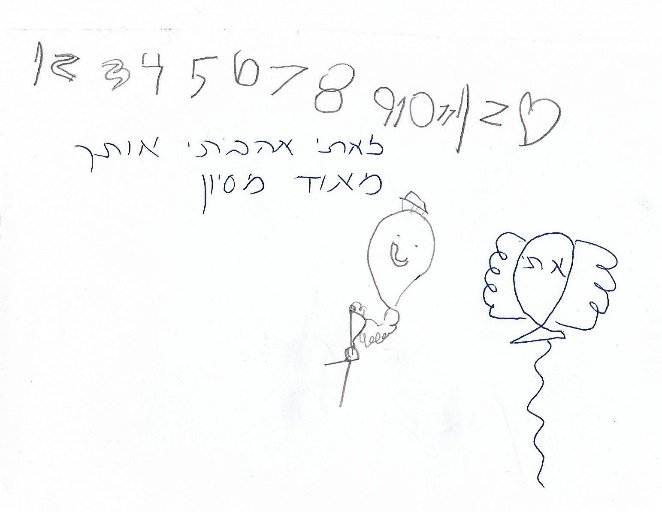 1 2 3 4 5 6 7 8 9 10 11 12
לאתי אהבתי אותך
מאוד מסיון
אתי